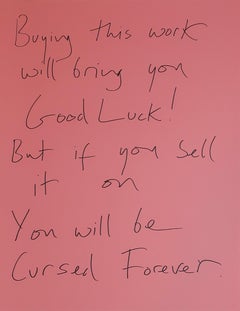 Buying this work
will bring you
Good Luck!
But if you sell
it on
You will be
Cursed Forever.